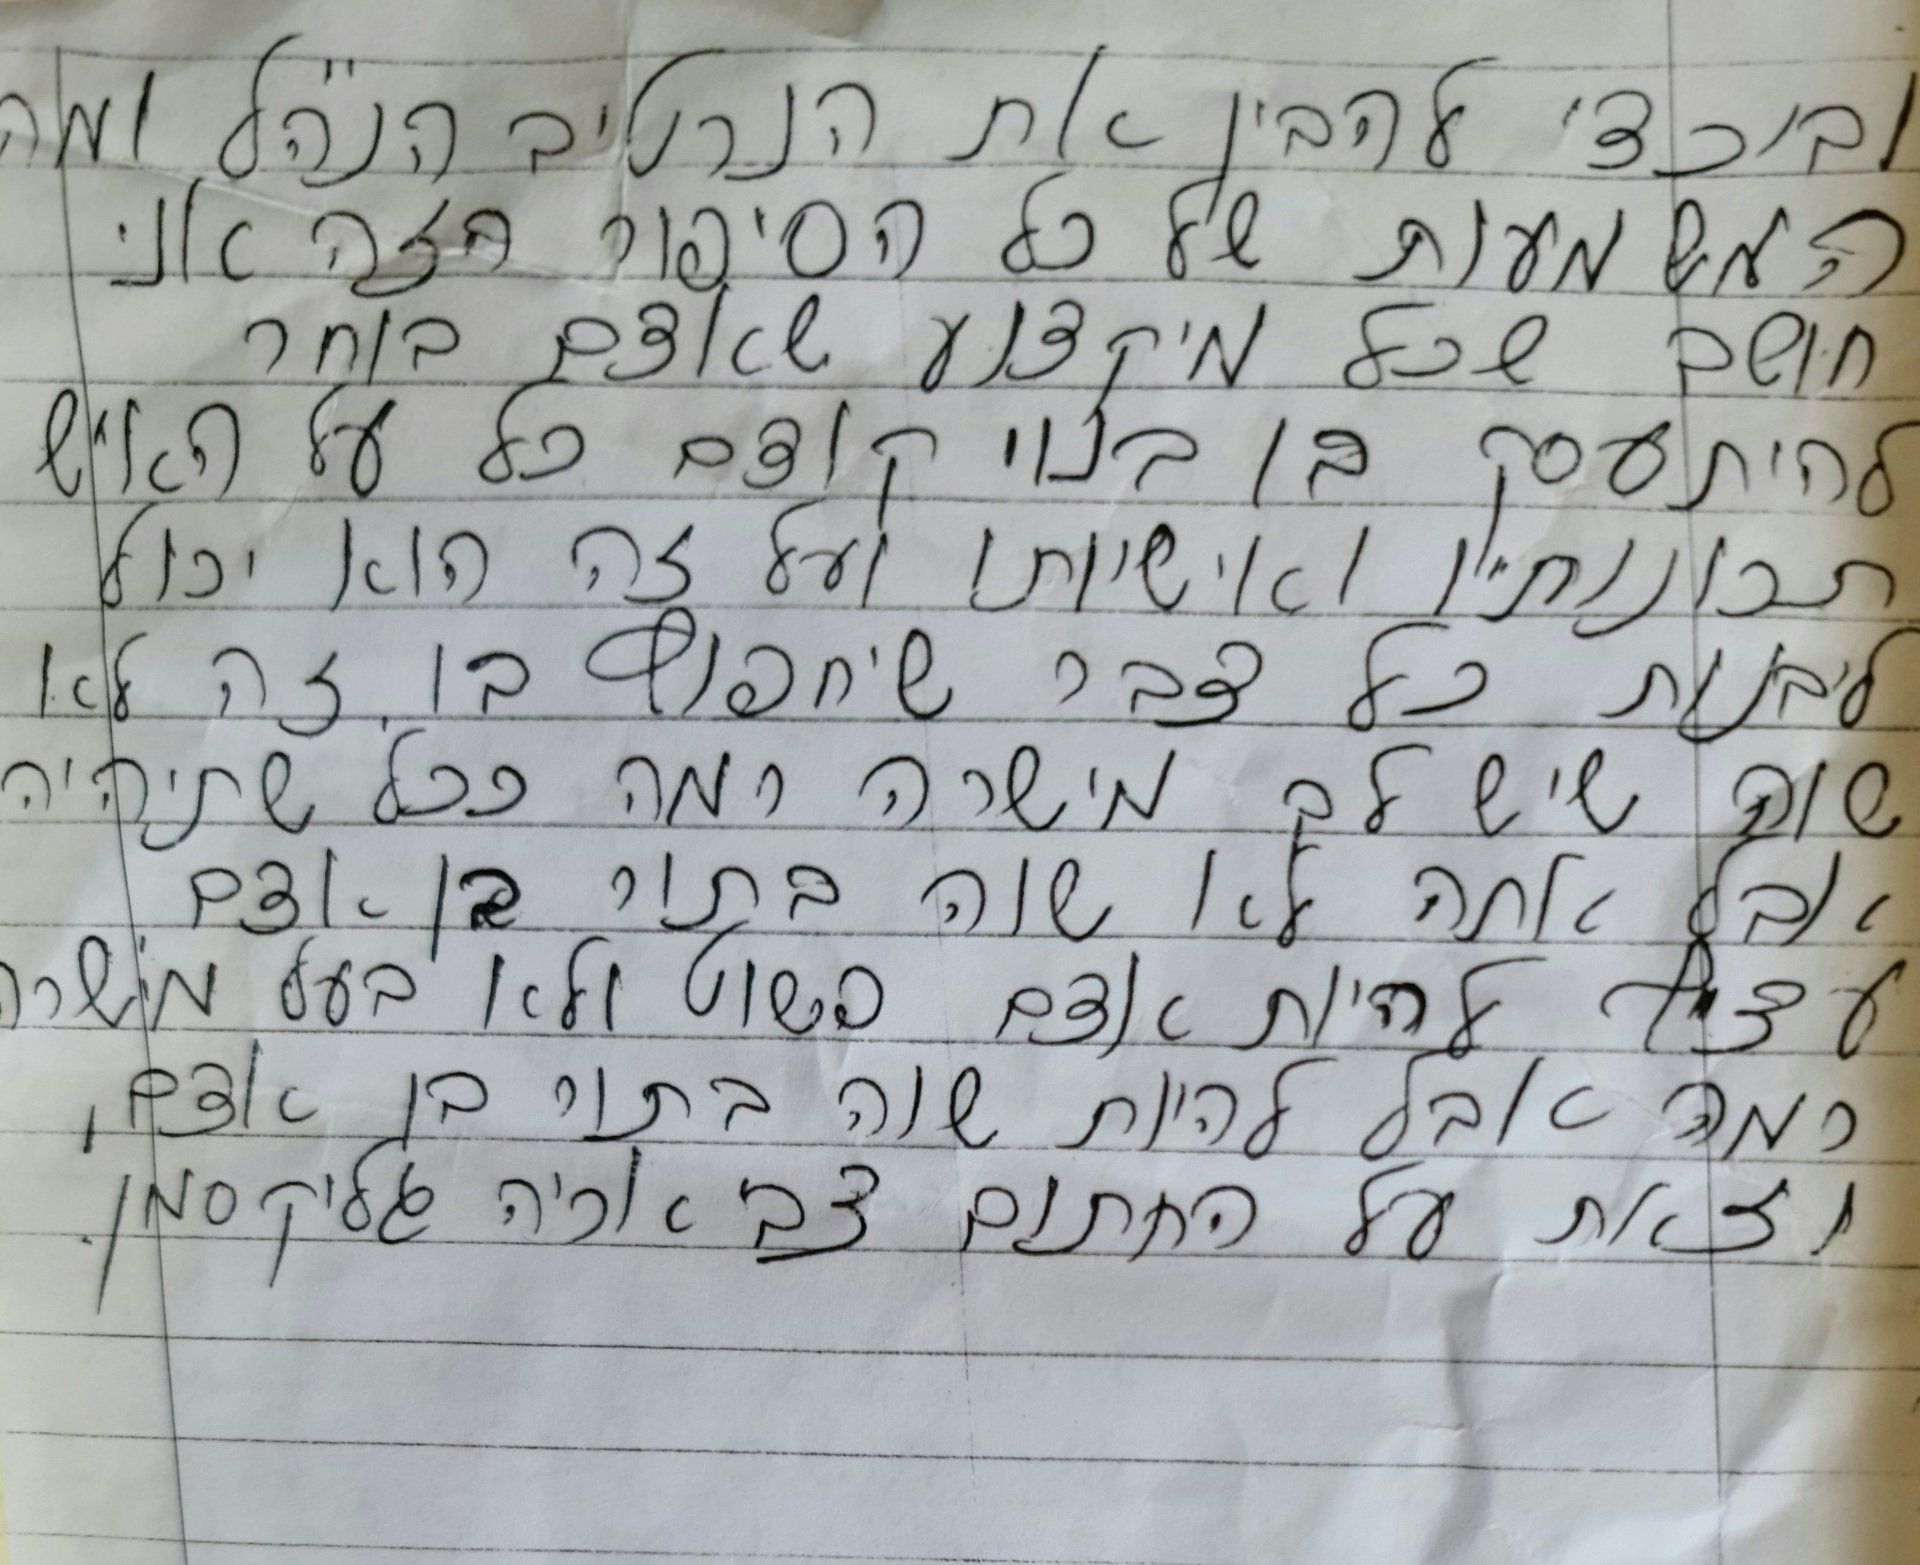 ובוכדי להבין את הנרטיב הנ"הל ומה
המשמעות של כל הסיפור הזה אני
חושב שכל מיקצוע שאדם בוחר
להיתעסק בו בנוי קודם כל על האיש
תכונותיו ואישיותו ועל זה הוא יכול
ליבנות כל דבר שיחפוץ בו. זה לא
שוה שיש לך מישרה רמה ככל שתיהיה
אבל אתה לא שוה בתור בן אדם
עדיף להיות אדם פשוט ולא בעל מישרה
רמה אבל להיות שוה בתור בן אדם,
וזאת על החתום דב אריה גליקסמן.